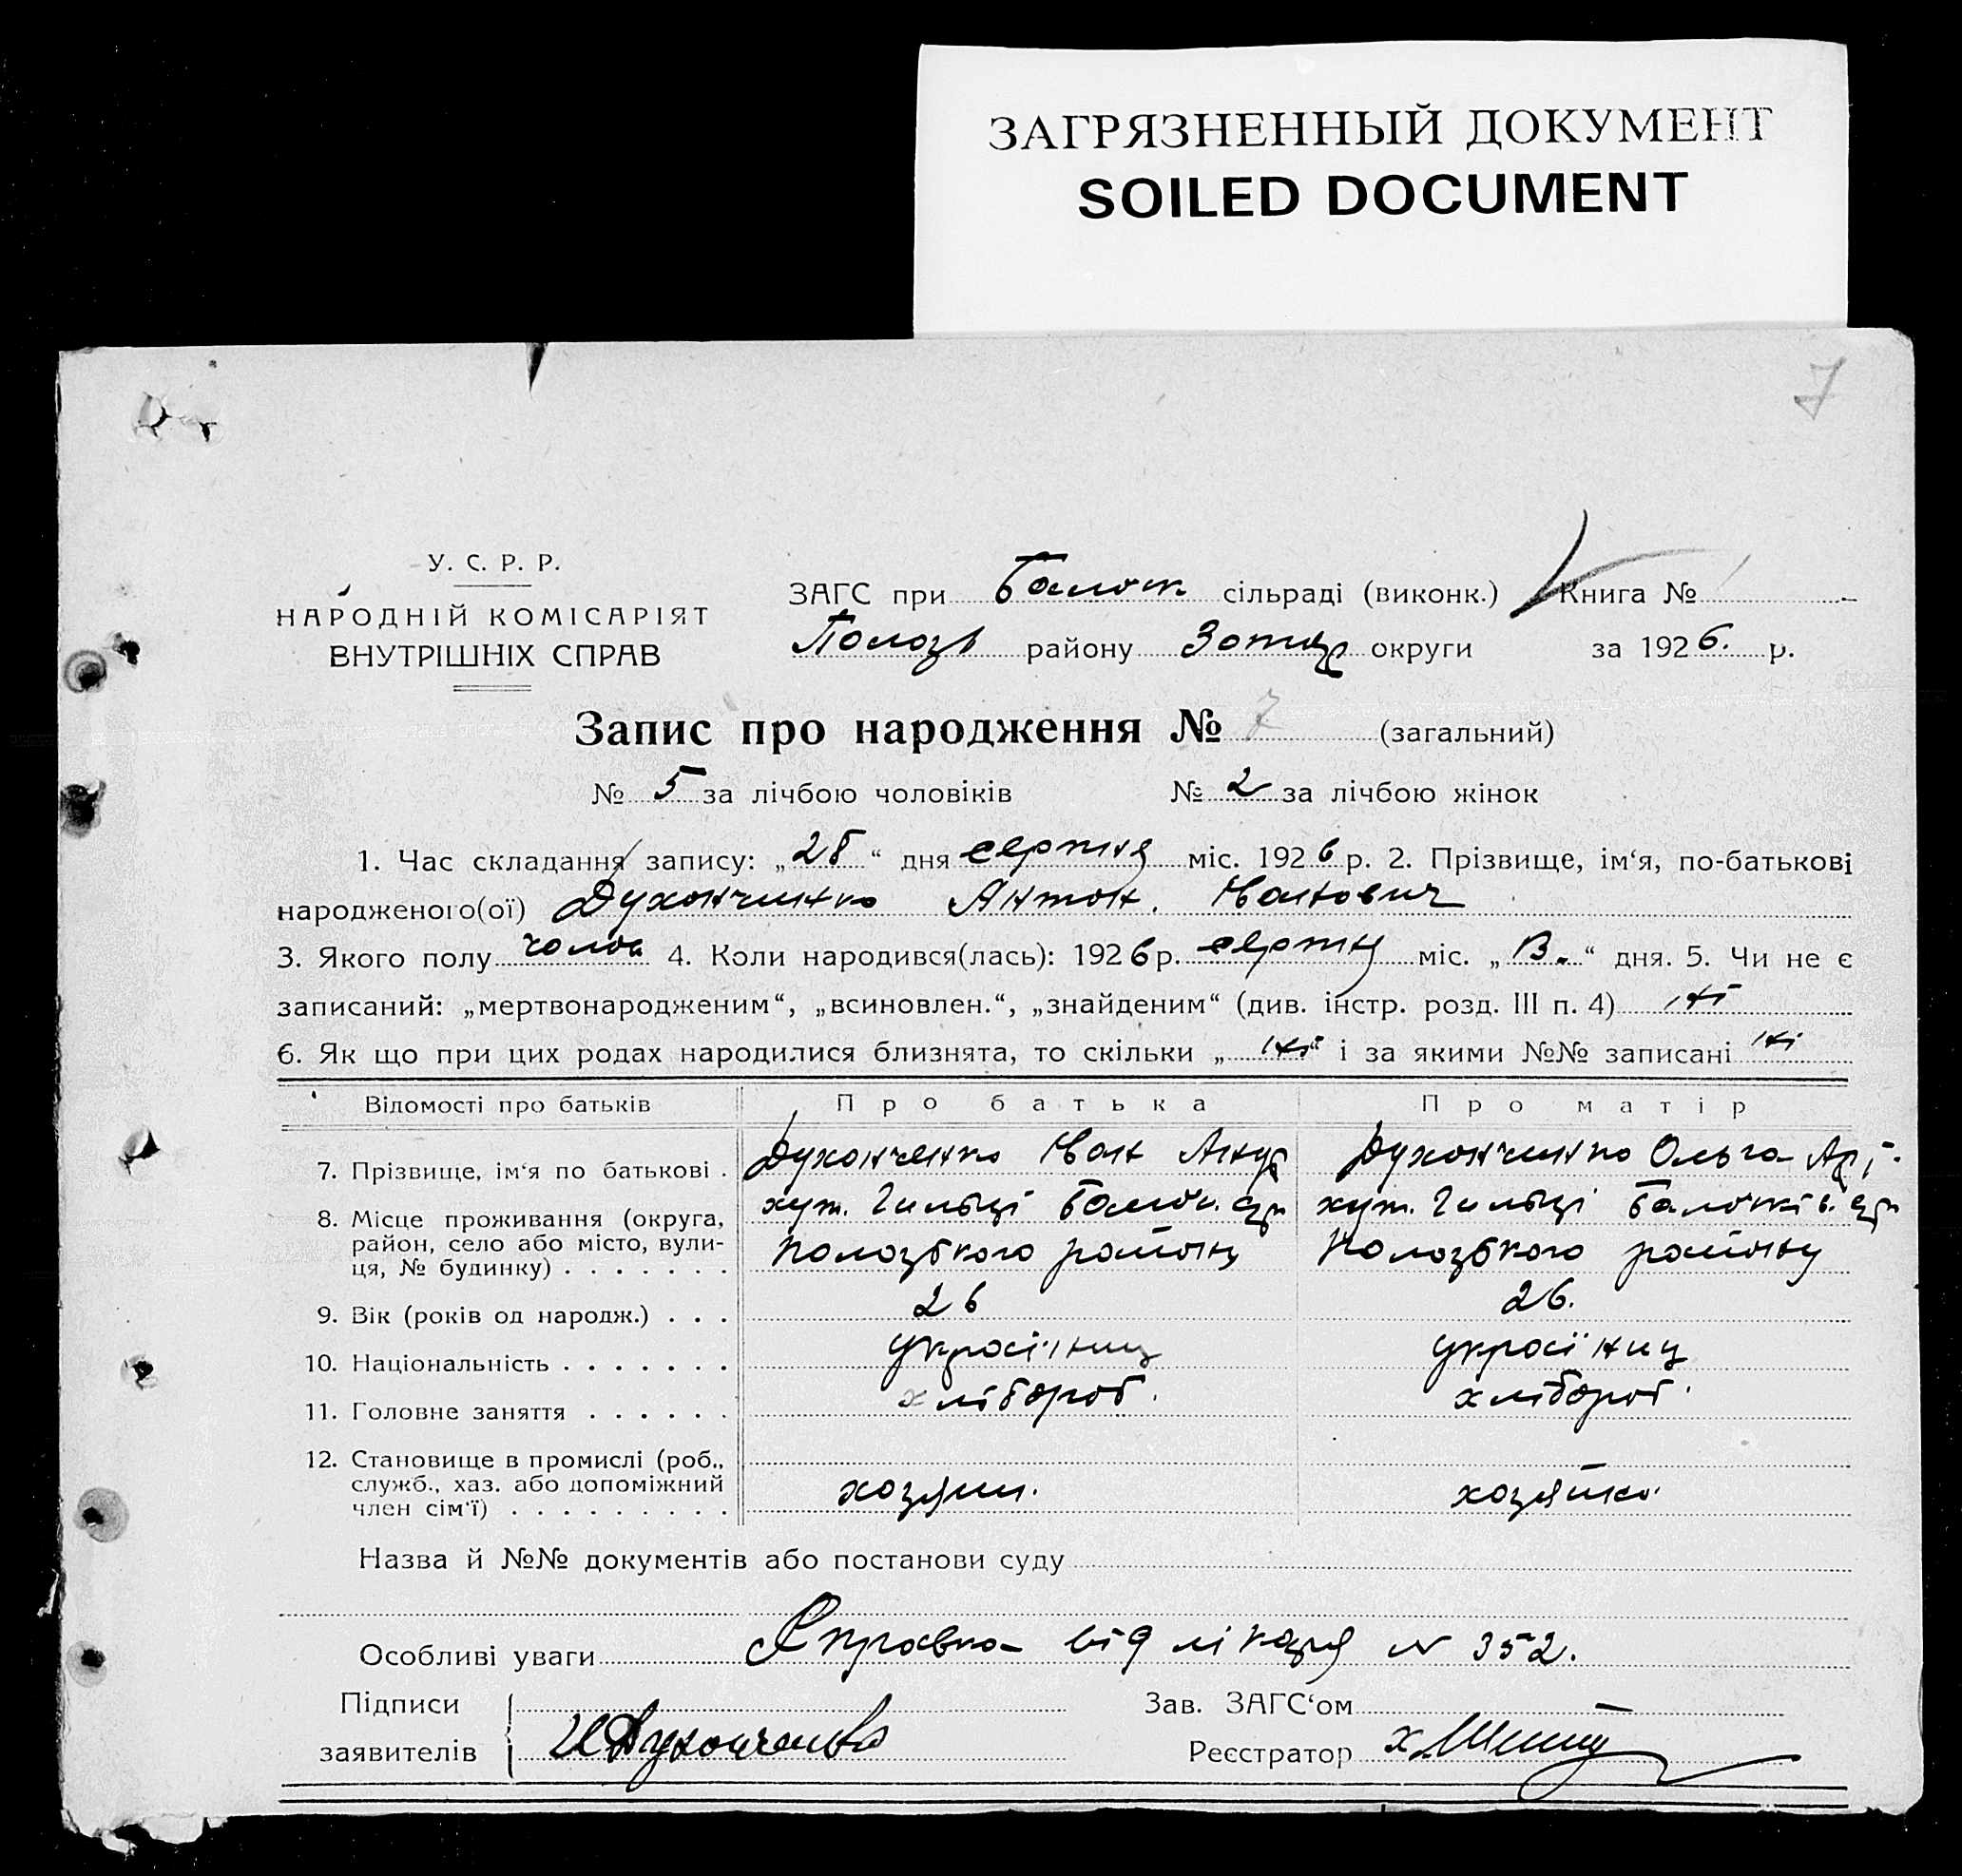 ЗАГРЯЗНЕННЫЙ ДОКУМЕНТ
SOILED DOCUMENT
7
У. С. Р. Р.
НАРОДНІЙ КОМІСАРІЯТ
ВНУТРІШНІХ СПРАВ
ЗАГС при Балочк. сільраді (виконк.) Книга №
району округи за 1926. р.
Запис про народження № 7 (загальний)
№ 5 за лічбою чоловіків № 2 за лічбою жінок
1. Час складання запису: „28“ дня серпня міс. 1926 р. 2. Прізвище, ім‘я, по-батькові
народженого(ої) Духонченко Антон. Іванович
3. Якого полу чолов 4. Коли народився(лась): 1926 р. серпня міс. „ “ дня. 5. Чи не є
записаний: „мертвонародженим“, „всиновлен.“, „знайденим“ (див. інстр. розд. III п. 4) ні
6. Як що при цих родах народилися близнята, то скільки „ні“ і за якими №№ записані ні
Відомості про батьків Про батька Про матір
7. Прізвище, ім‘я по батькові . Духонченко Іван Духонченко Ольга
8. Місце проживання (округа, район, село або місто, вулиця, № будинку) . . . . . . . хут. хут.
района району
9. Вік (років од народж.) . . . 26 26.
10. Національність . . . . . . . українец україниц
11. Головне заняття . . . . . . хлібороб. хлібороб.
12. Становище в промислі (роб., служб., хаз. або допоміжний член сім‘ї) . . . . . . . . . хозяин. хозяйка.
Назва й №№ документів або постанови суду
Особливі уваги Справка від лікаря № 352.
Підписи Зав. ЗАГС‘ом
заявителів И Духонченко Реєстратор